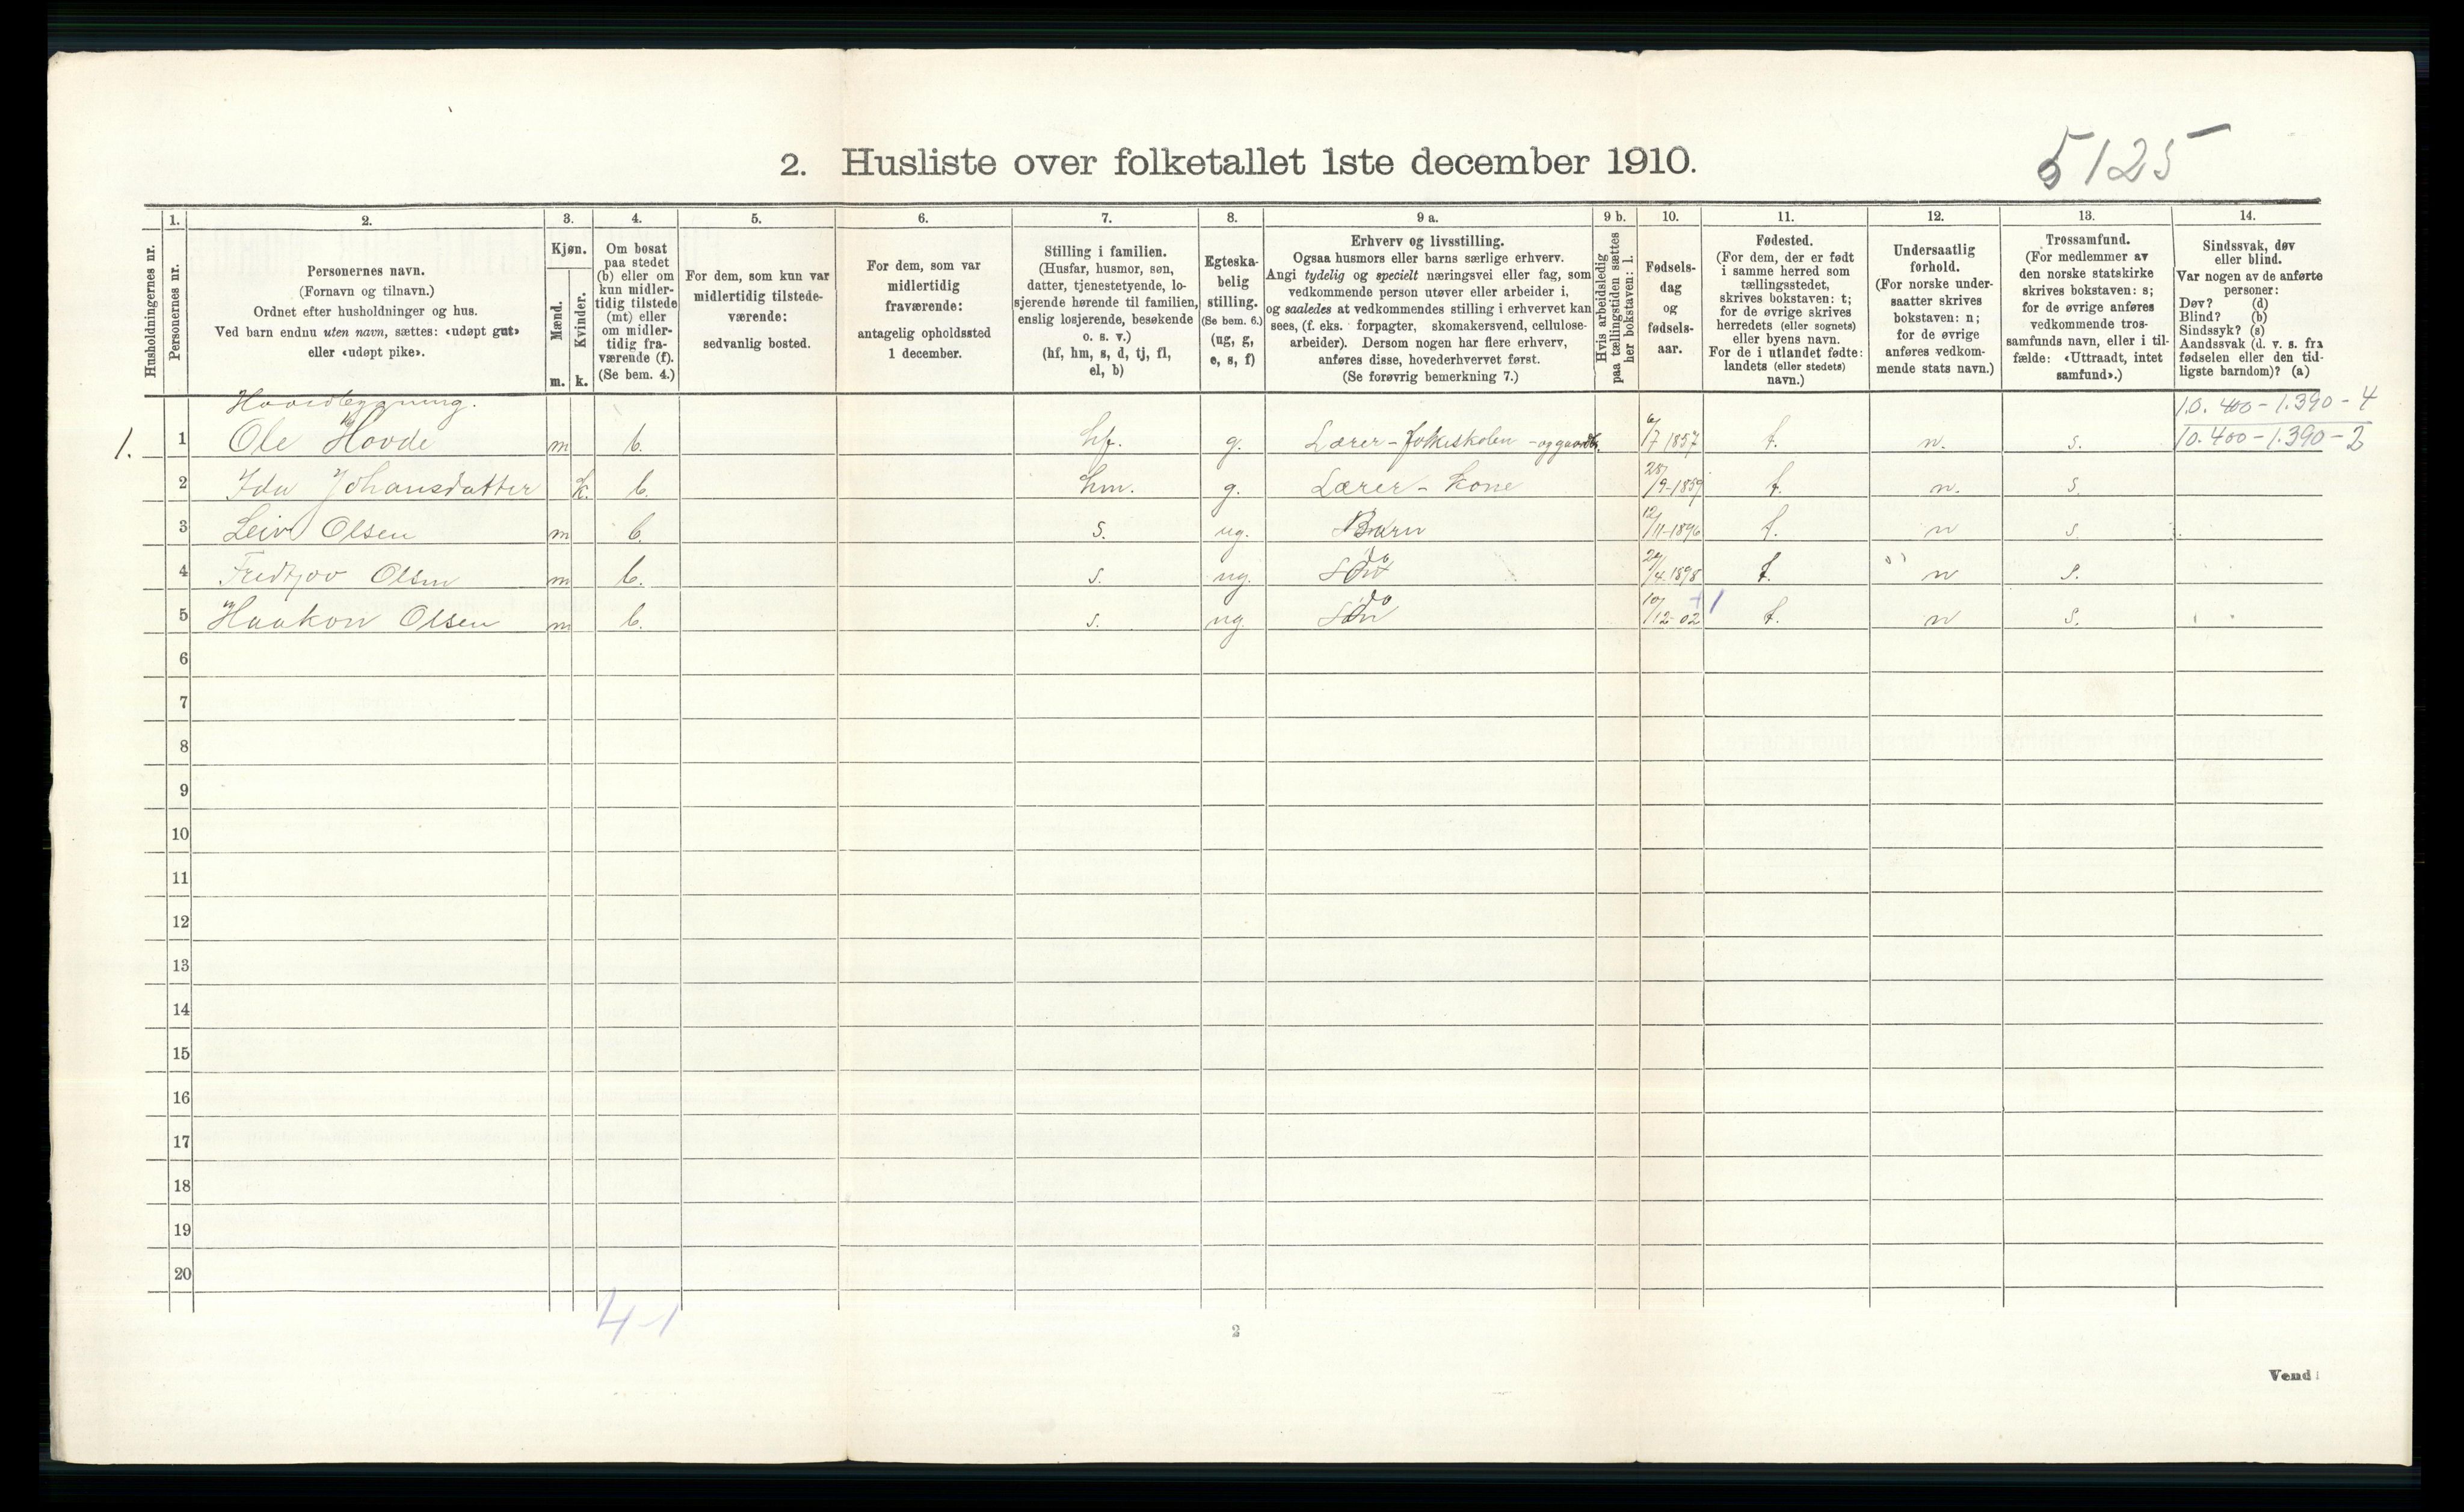 2. Husliste over folketallet 1ste december 1910.
5125
Husholdningernes nr.
1.
Personernes nr.
2.
Personernes navn.
(Fornavn og tilnavn.)
Ordnet efter husholdninger og hus.
Ved barn endnu uten navn, sættes: «udøpt gut»
eller «udøpt pike».
3.
Kjøn.
Mænd.
Kvinder.
m. k.
4.
Om bosat
paa stedet
(b) eller om
kun midler-
tidig tilstede
(mt) eller
om midler-
tidig fra-
værende (f).
(Se bem. 4.)
5.
For dem, som kun var
midlertidig tilstede-
værende:
sedvanlig bosted.
6.
For dem, som var
midlertidig
fraværende:
antagelig opholdssted
1 december.
7.
Stilling i familien.
(Husfar, husmor, søn,
datter, tjenestetyende, lo-
sjerende hørende til familien,
enslig losjerende, besøkende
o. s. v.)
(hf, hm, s, d, tj, fl,
el, b)
8.
Egteska-
belig
stilling.
(Se bem. 6.)
(ug, g,
e, s, f)
9 a.
Erhverv og livsstilling.
Ogsaa husmors eller barns særlige erhverv.
Angi tydelig og specielt næringsvei eller fag, som
vedkommende person utøver eller arbeider i,
og saaledes at vedkommendes stilling i erhvervet kan
sees, (f. eks. forpagter, skomakersvend, cellulose-
arbeider). Dersom nogen har flere erhverv,
anføres disse, hovederhvervet først.
(Se forøvrig bemerkning 7.)
9 b.
Hvis arbeidsledig
paa tællingstiden sættes
her bokstaven: l.
10.
Fødsels-
dag
og
fødsels-
aar.
11.
Fødested.
(For dem, der er født
i samme herred som
tællingsstedet,
skrives bokstaven: t;
for de øvrige skrives
herredets (eller sognets)
eller byens navn.
For de i utlandet fødte:
landets (eller stedets)
navn.)
12.
Undersaatlig
forhold.
(For norske under-
saatter skrives
bokstaven: n;
for de øvrige
anføres vedkom-
mende stats navn.)
13.
Trossamfund.
(For medlemmer av
den norske statskirke
skrives bokstaven: s;
for de øvrige anføres
vedkommende tros-
samfunds navn, eller i til-
fælde: «Uttraadt, intet
samfund».)
14.
Sindssvak, døv
eller blind.
Var nogen av de anførte
personer:
Døv? (d)
Blind? (b)
Sindssyk? (s)
Aandssvak (d. v. s. fra
fødselen eller den tid-
ligste barndom)? (a)
Hovedbygning. 10.400-1.390-4
1. 1 Ole Hovde m b. hf. g. Lærer-folkeskolen - og gaardb. 6/7 1857 t. n. s. 10.400-1.390-2
2 Ida Johansdatter k. b. hm. g. Lærer-Kone 28/9-1859 t. n. s.
3 Leiv Olsen m b. s. ug. Barn 12/11-1896 t. n s.
4 Fredtjov Olsen m b. s. ug. do 24/4 1898 t. n s.
5 Haakon Olsen m b. s. ug. do 10/12-02 1 t. n s.
6
7
8
9
10
11
12
13
14
15
16
17
18
19
20
4-1
2
Vend!